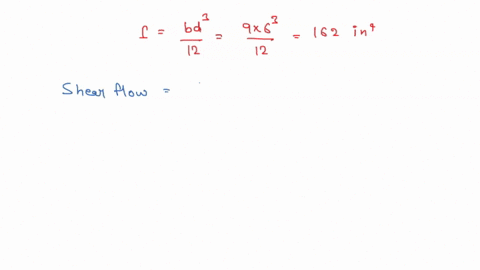 I = bd³/12 = 9x6³/12 = 162 in⁴
Shear flow =